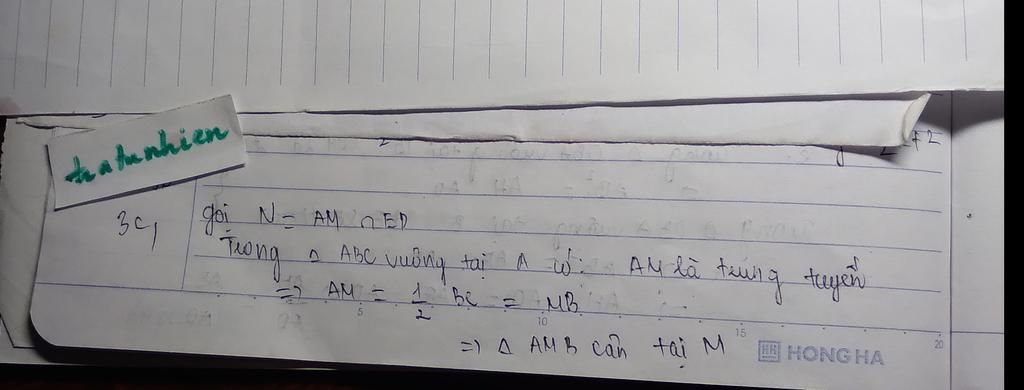 tratunhien
3c,
gọi N = AM ∩ ED
Trong Δ ABC vuông tại A có: AM là trung tuyến
=> AM = 1/2 BC = MB
=> Δ AMB cân tại M
5 10 15 20
HH HONG HA